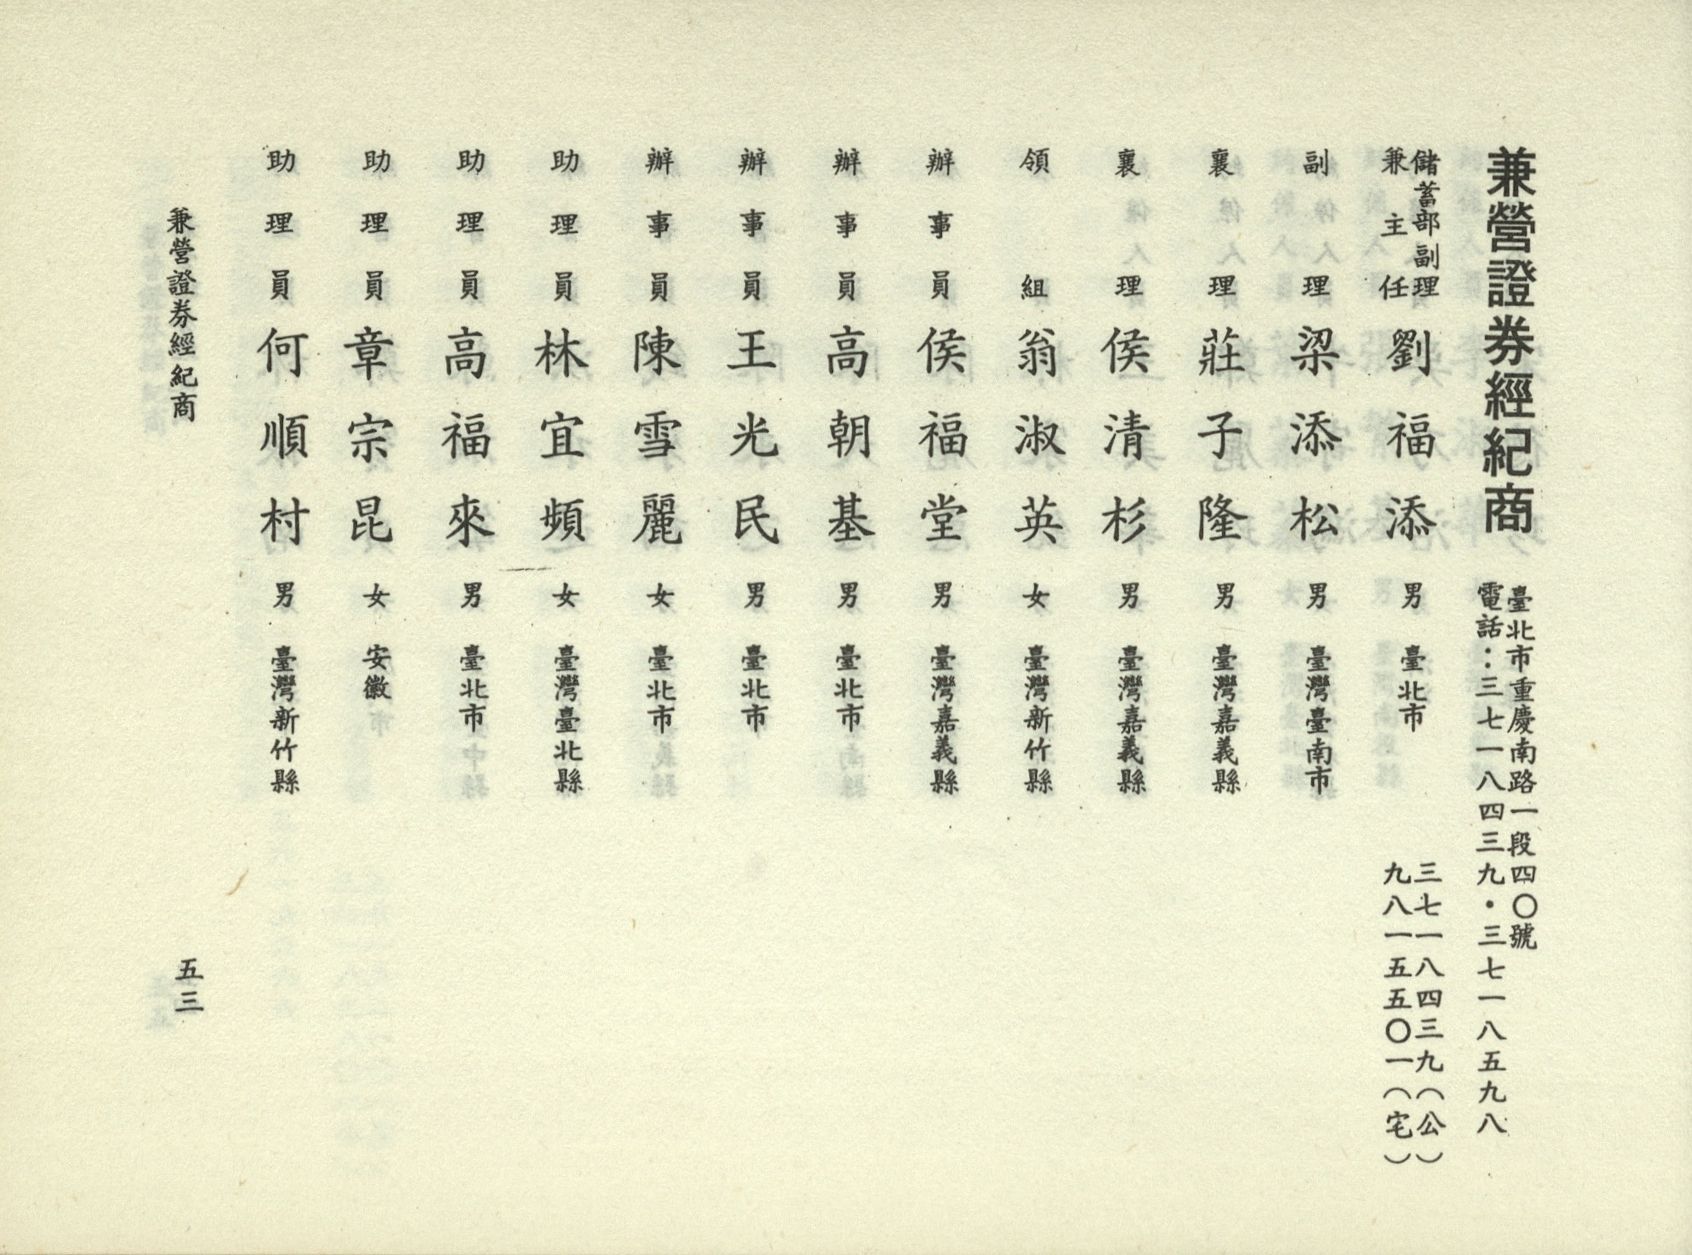 兼營證券經紀商
臺北市重慶南路一段四〇號
電話：三七一八四三九・三七一八五九八
儲蓄部副理
兼主任 劉福添 男 臺北市
三七一八四三九（公）
九八一五五〇一（宅）
副理 梁添松 男 臺灣臺南市
襄理 莊子隆 男 臺灣嘉義縣
襄理 侯清杉 男 臺灣嘉義縣
領組 翁淑英 女 臺灣新竹縣
辦事員 侯福堂 男 臺灣嘉義縣
辦事員 高朝基 男 臺北市
辦事員 王光民 男 臺北市
辦事員 陳雪麗 女 臺北市
助理員 林宜頻 女 臺灣臺北縣
助理員 高福來 男 臺北市
助理員 章宗昆 女 安徽
助理員 何順村 男 臺灣新竹縣
兼營證券經紀商
五三